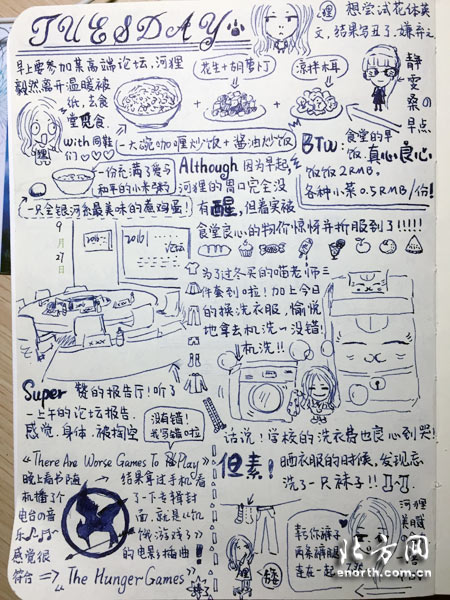 TUESDAY
想尝试花体英
文,结果写丑了,嫌弃之
早上要参加某高端论坛,河狸
毅然离开温暖被
纸,去食
堂觅食.
With 同鞋
们
花生+胡萝卜丁
凉拌木耳
静
雯
桑の
早点
一大碗咖喱炒饭+酱油炒饭
BTW:食堂的早
饭真心良心
饭饭2RMB,
各种小菜0.5RMB/份!
一份充满了爱与
和平的小米粥
一只全银河系最美味的煮鸡蛋!
Although 因为早起,
河狸的胃口完全没
有醒,但着实被
食堂良心的物价惊呀并折服到了!!!!!
9
月
27
日
2016
2016
论坛
为了过冬买的喵老师三
件套到啦!加上今日
的换洗衣服,愉悦
地拿去机洗—没错!
机洗!!
Super 赞的报告厅!听了
一上午的论坛报告.
感觉.身体.被掏空
没有错!
我写错啦
话说!学校的洗衣费也良心到哭!
但素!晒衣服的时候,发现忘
洗了一只袜子!!
“There Are Worse Games To Play”
晚上看书随
机播了个
电台の音
乐
感觉很
符合 =>
结果拿过手机看
了一下专辑封
面,就是《饥
饿游戏》
的电影插曲!
“The Hunger Games”
幸亏你裤子
两条裤腿
连在一起
河狸
美腿
北方网
enorth.com.cn